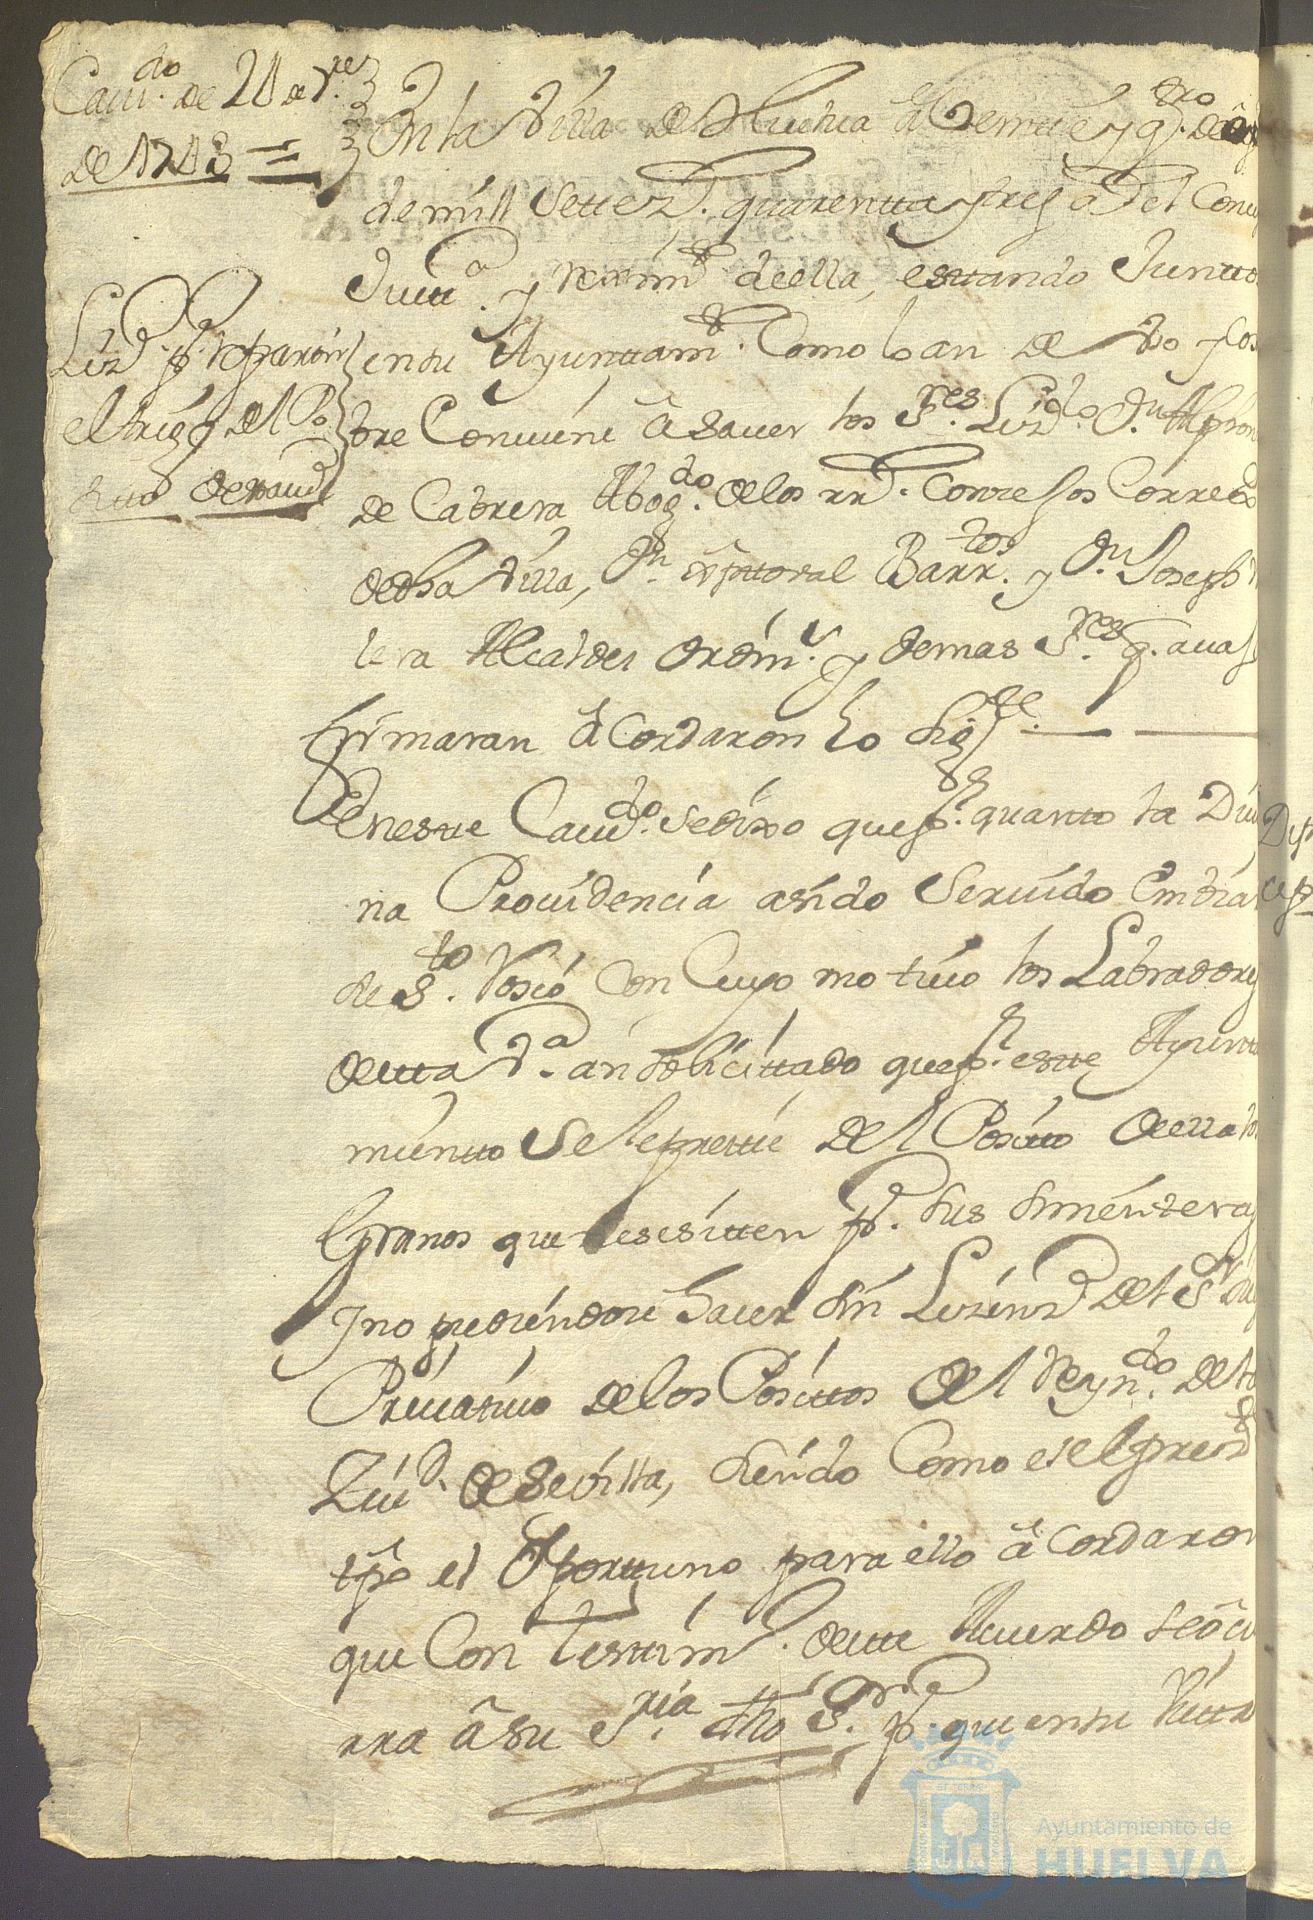 Cavdo. de 24 de re
de 1743 =
Lizª. pª. reparan
el trigo del Po
sito
En la Villa de Huelva a Veinte y q.tro de
de mill Settez.s quarentta y tres a. el Conc
Justt.a y reximto. de ella, estando Juntto
en su Ayunttamto. Como lo an de Vso y cos
bre Conviene â saver los S.res Lizdo. D.n Alfon
de Cabrera Abogdo. de los rrs. Consejos Correx
de dha Villa, D.n Xptoval Barr.tos y D.n Joseph
lera Alcaldes Ordin.s y demas S.res q. avaj
firmaran âcordaron lo sig.te
En este Cavdo. se dixo que p.r quanto la Divi
na Providencia a sido Servido Embiar
de S. to Rosio Con Cuyo motivo los Labradores
de esta V.a an soliCittado que p.r este Ayuntta
mientto Se le preste del Positto de ella los
Granos que nesesitten p.a sus simenteras
Y no pudiendose hacer sin Lizenz.a del S.r
Privativo de los Posittos del Reyn.do de la
Ziud. de Sevilla, siendo Como es el presen
tpo el Oporttuno para ello âcordaron
que Con Testtim.o de este Acuerdo se ôcu
rra â su S.ria dho S.r p.a que en su Vistta
Ayuntamiento de
HUELVA